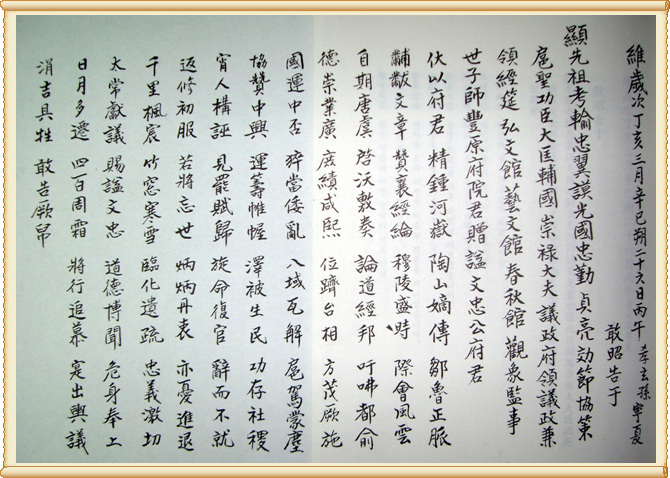 維歲次丁亥三月辛巳朔二十六日丙午 孝玄孫寧夏
敢昭告于
顯先祖考輸忠翼謨光國忠勤貞亮効節協策
扈聖功臣大匡輔國崇祿大夫議政府領議政兼
領經筵弘文館藝文館春秋館觀象監事
世子師豊原府院君贈諡文忠公府君
伏以府君 精鍾河嶽 陶山嫡傳 鄒魯正脈
黼黻文章 贊襄經綸 穆陵盛時 際會風雲
自期唐虞 啓沃敷奏 論道經邦 吁咈都俞
德崇業廣 庶績咸熙 位躋台相 方茂厥施
國運中否 猝當倭亂 八域瓦解 扈駕蒙塵
協贊中興 運籌帷幄 澤被生民 功存社稷
宵人構誣 見罷賦歸 旋命復官 辭而不就
返修初服 若將忘世 炳炳丹衷 亦憂進退
千里楓宸 竹窓寒雪 臨化遺疏 忠義激切
太常獻議 賜諡文忠 道德博聞 危身奉上
日月多遷 四百周霜 將行追慕 寔出輿議
涓吉具牲 敢告厥由